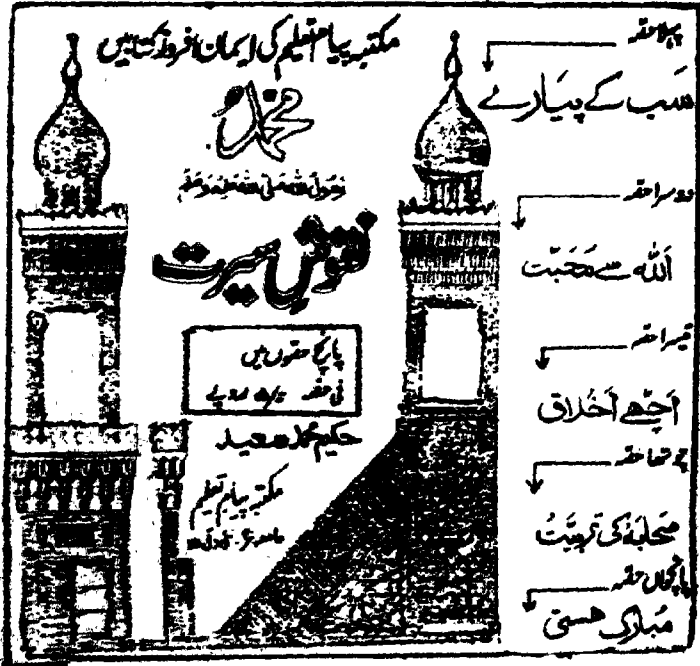 مکتبہ پیام تعلیم کی ایمان افروز کتابیں
محمد
رسول اللہ صلی اللہ علیہ وسلم
نقوش سیرت
پانچ حصّوں میں
فی حصّہ ۵/= روپے
حکیم محمد سعید
مکتبہ پیام تعلیم
پہلا حصّہ
سَب کے پیَارے
دوسرا حصّہ
اَللہ سے مَحَبّت
تیسرا حصّہ
اَچّھے اَخْلاق
چوتھا حصّہ
صَحابَہؓ کی تربیَتْ
پانچواں حصّہ
مُبارک ہستی